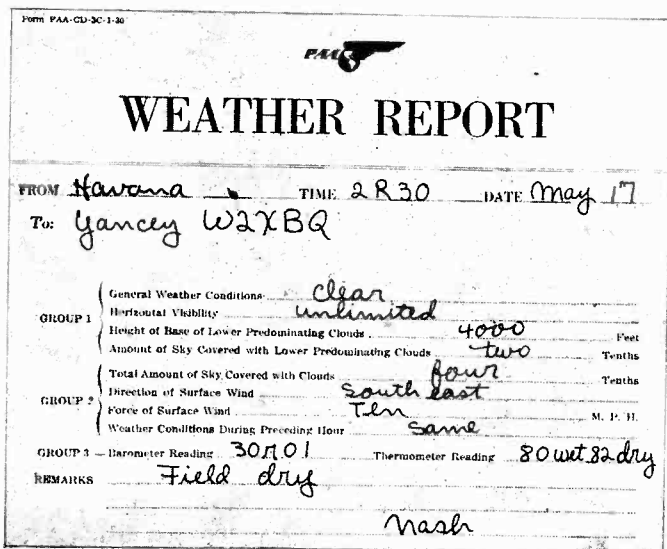 Form PAA-CD-3C-1-30
PAA
WEATHER REPORT
FROM Havana TIME 2R30 DATE May 17
To: Yancey W2XBQ
GROUP 1
General Weather Conditions clear
Horizontal Visibility unlimited
Height of Base of Lower Predominating Clouds 4000 Feet
Amount of Sky Covered with Lower Predominating Clouds two Tenths
GROUP 2
Total Amount of Sky Covered with Clouds four Tenths
Direction of Surface Wind South east
Force of Surface Wind Ten M. P. H.
Weather Conditions During Preceding Hour Same
GROUP 3 — Barometer Reading 30R01 Thermometer Reading 80 wet 82 dry
REMARKS Field dry
Nash